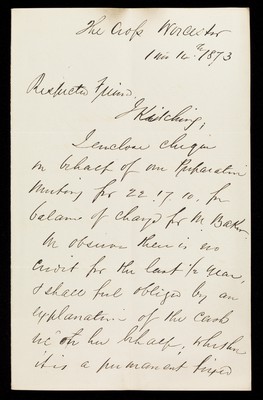 The Cross Worcester
1 mo 14th 1873
Respected Friend,
J Kitching,
I enclose cheque
on behalf of our Preparative
Meeting for 22.17.10. for
balance of charge for M. Baker
We observe there is no
credit for the last 1/2 year,
I shall feel obliged by an
explanation of the cash
on her behalf, whether
it is a permanent fixed